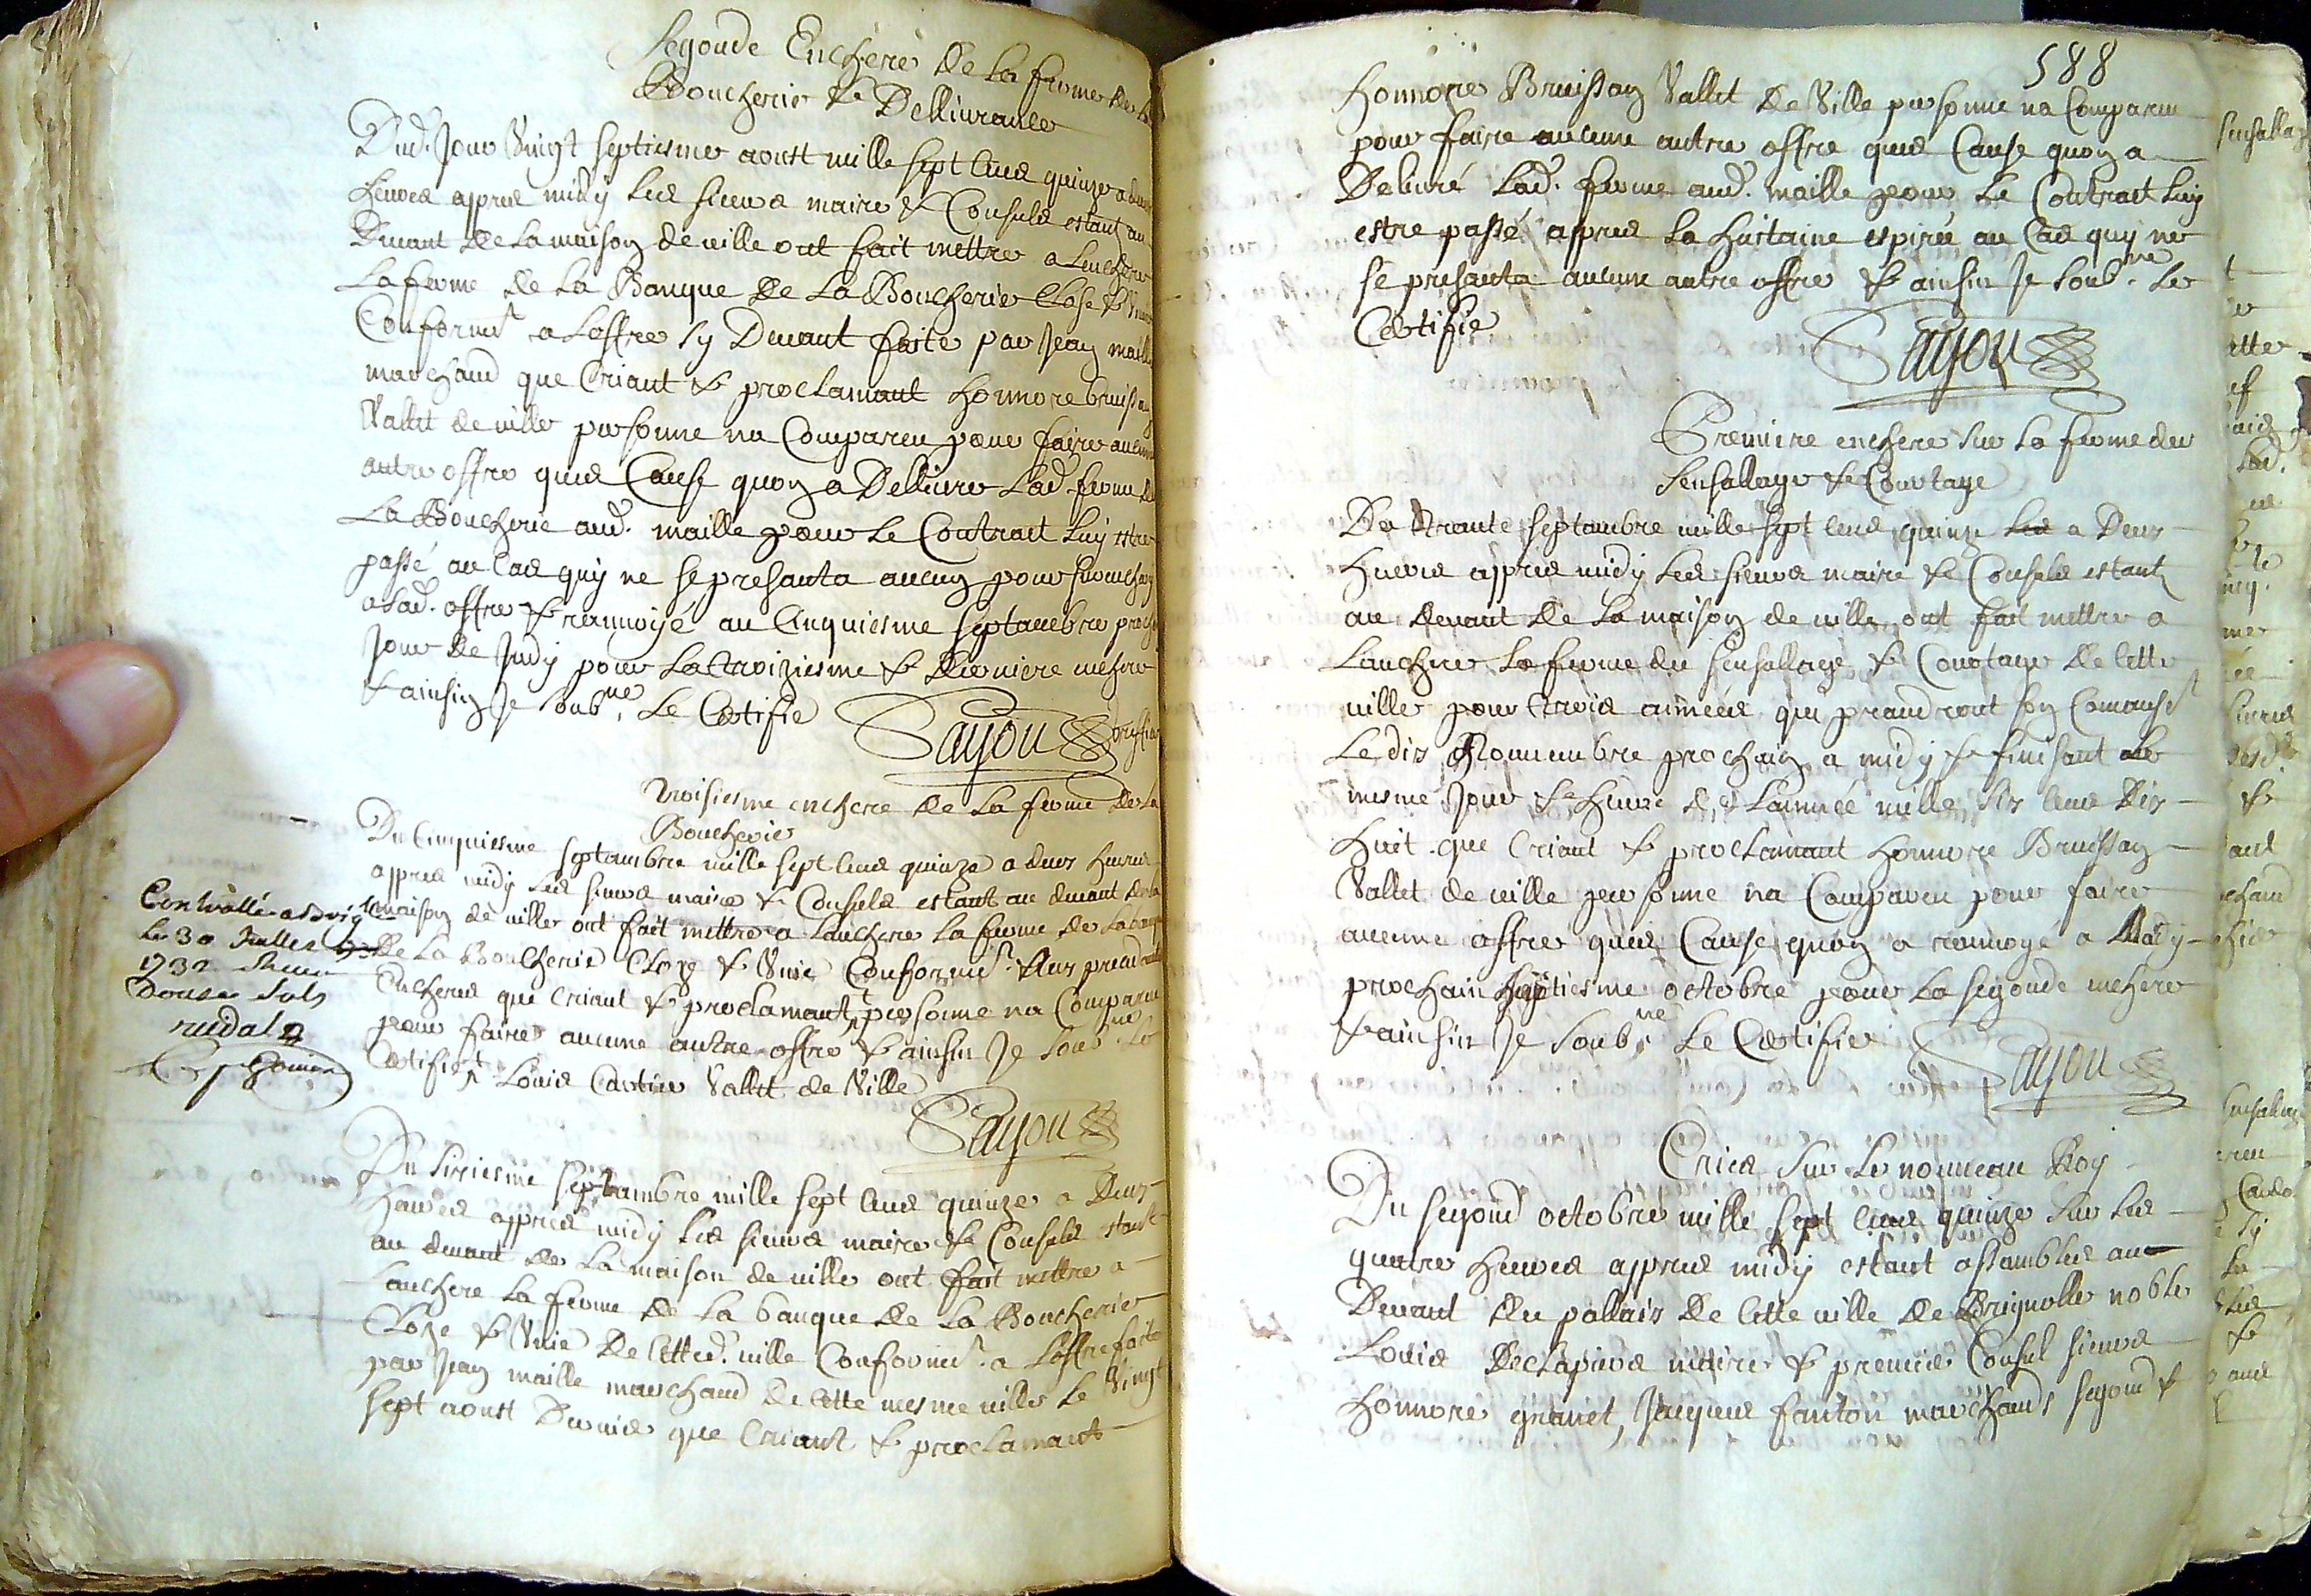 Segonde Enchere de la ferme de la
Boucherie & Dellivrance
Dud. Jour Vingt septiesme aoust mille sept cens quinze a deux
heures appres midy les sieurs maire & Consuls estant au
Devant de la maison de ville ont fait mettre a lenchere
La ferme de la Banque de la Boucherie Close &
Conformt a Loffre sy Devant faite par Jean maille
marchand que Criant & proclamant honnore bruissan
Vallet de ville personne na Compareu pour faire aucune
autre offre quies Cause quon a Dellivre Lad. ferme de
La Boucherie aud. maille pour le Contract luy estre
passé au Cas quy ne se presanta aucun pour surencherir
a Lad. offre & ranvoyé au Cinquiesme septambre proch
Jour de Judy pour La troiziesme & derniere enchere
& ainsin Je soubne. Le Certifie
Sayou greffier
Troisiesme enchere de la ferme de la
Boucherie
Du Cinquiesme septambre mille sept cens quinze a deux heures
appres midy les sieurs maire & Consuls estant au devant de la
maison de ville ont fait mettre a lanchere la ferme de la banque
de la Boucherie Cloze & Conformt. Aux precedentes
Encheres que Criant & proclamant personne na Compareu
pour faire aucune autre offre & ainsin Je soubne. Le
Certifie Louis Cartier Vallet de Ville
Sayou
Contrôllé a
Le 30 Juillet
1732
Douse sols
Du sixiesme septambre mille sept cens quinze a Deux
heures appres midy les sieurs maire & Consuls estant
au devant de La maison de ville ont fait mettre a
Lanchere la ferme de la banque de La Boucherie
Cloze & De Cetted. ville Conformt. a Loffre faite
par Jean maille marchand de Cette mesme ville le Vingt
sept aoust Dernier que Criant & proclamant
588
Honnore Bruissan Vallet de Ville personne na Compareu
pour faire aucune autre offre quies Cause quon a
Delivré Lad. ferme aud. maille pour le Contract luy
estre passé appres la huitaine espirée au Cas quy ne
se presanta aucune autre offre & ainsin Je soubne. Le
Certifie
Sayou
Premiere enchere sur la ferme du
Sensallage & Courtage
Du trante septambre mille sept cens quinze les a Deux
Heures appres midy les sieurs maire & Consuls estant
au devant de la maison de ville ont fait mettre a
Lanchere la ferme du sensallage & Courtage de Cette
ville pour trois années qui prandront son Comanst
Le dix Nouvembre prochain a midy & finisant le
mesme Jour & heure de Lannée mille six cens Dix
Huit que Criant & proclamant Honnore Bruissan
Vallet de ville personne na Compareu pour faire
aucune offre quies Cause quon a ranvoyé a Mady
prochain huitiesme octobre pour la segonde enchere
& ainsin Je Soubne. Le Certifie
Sayou
Cries sur Le nouveau Roy
Du segond octobre mille sept cens quinze sur les
quatre heures appres midy estant assambles au
Devant du pallais de Cette ville de Brignolle noble
Louis Declapiers maire & premier Consul sieurs
Honnore granet, Jacques fanton marchands segond &